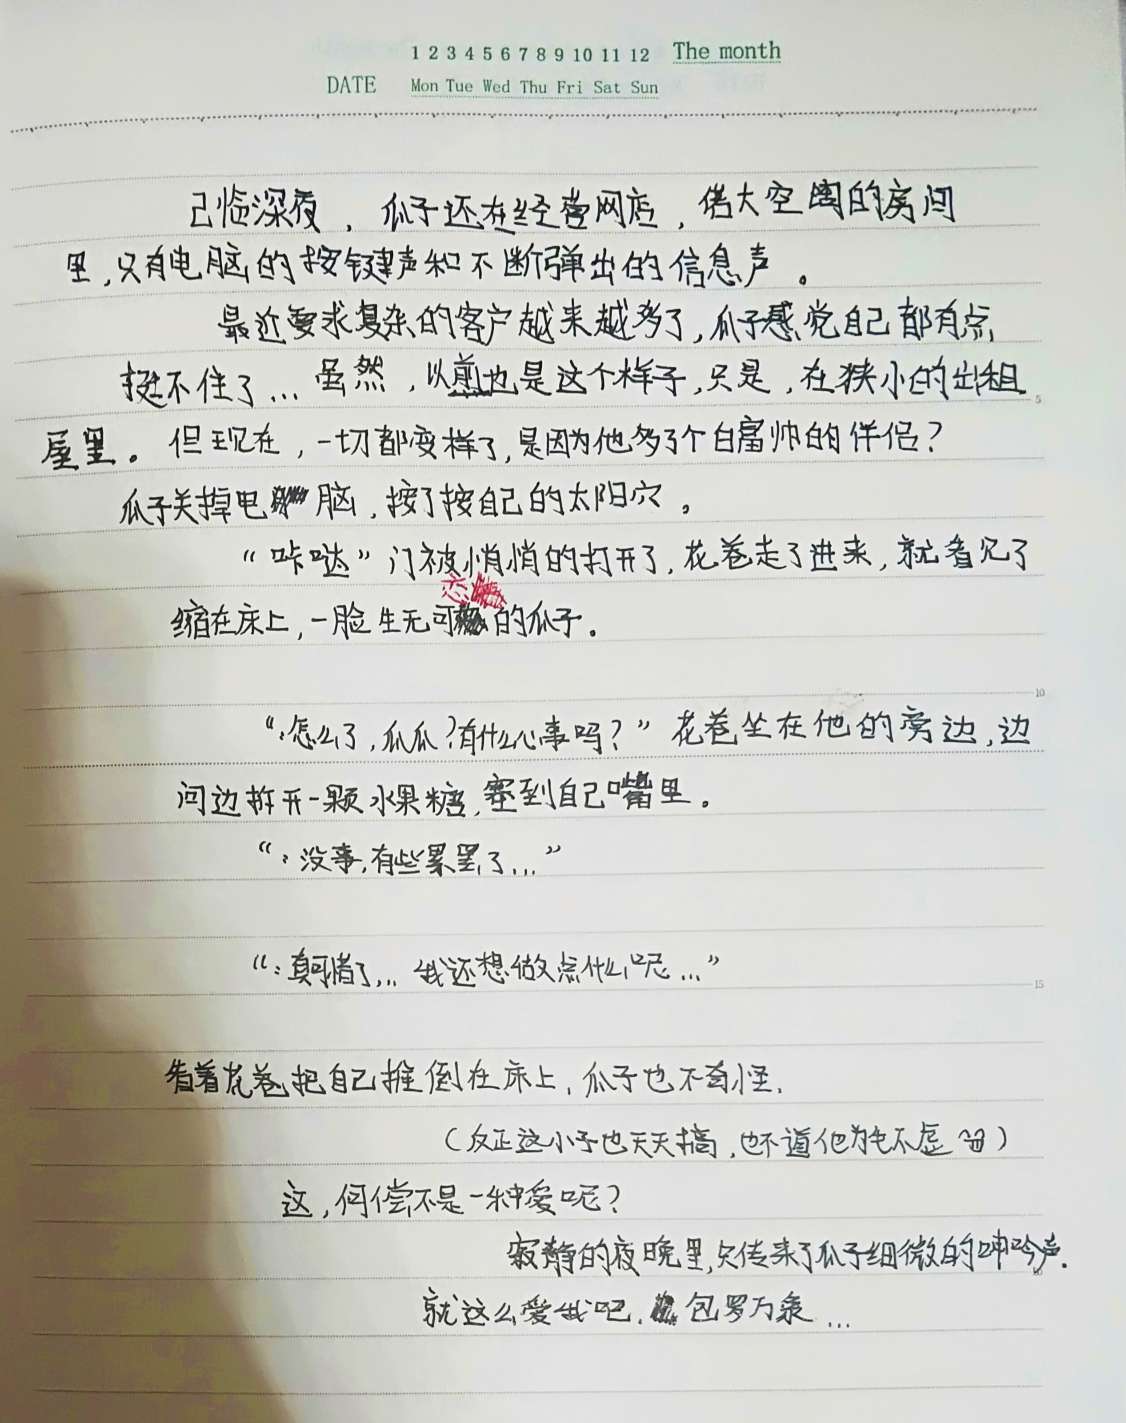 1 2 3 4 5 6 7 8 9 10 11 12 The month
DATE Mon Tue Wed Thu Fri Sat Sun
己临深夜，瓜子还在经营网店，偌大空阔的房间
里，只有电脑的按键声和不断弹出的信息声。
最近要求复杂的客户越来越多了，瓜子感觉自己都有点
挺不住了... 虽然，以前也是这个样子，只是，在狭小的出租
5
屋里。但现在，一切都变样了，是因为他多了个白富帅的伴侣？
瓜子关掉电脑，按了按自己的太阳穴。
“咔哒”门被悄悄的打开了，花卷走了进来，就看见了
恋
缩在床上，一脸生无可的瓜子。
10
“：怎么了，瓜瓜？有什么心事吗？”花卷坐在他的旁边，边
问边拆开一颗水果糖，塞到自己嘴里。
“：没事，有些累罢了...”
“：真可惜了... 我还想做点什么呢...”
15
看着花卷把自己推倒在床上，瓜子也不奇怪，
（反正这小子也天天搞，也不道他为毛不虚）
这，何偿不是一种爱呢？
寂静的夜晚里，只传来了瓜子细微的呻吟声．
就这么爱我吧．包罗万象...